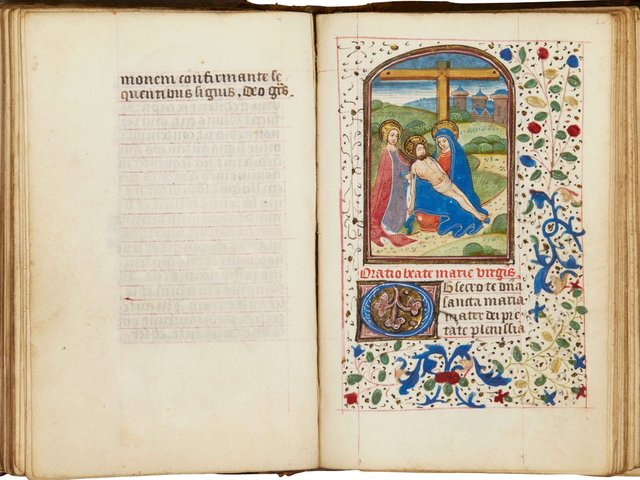 monem confirmante se
quentibus signis, deo grs.
Oratio beate marie virgis
Obsecro te dna
sancta maria
mater dei pie
tate plenissia